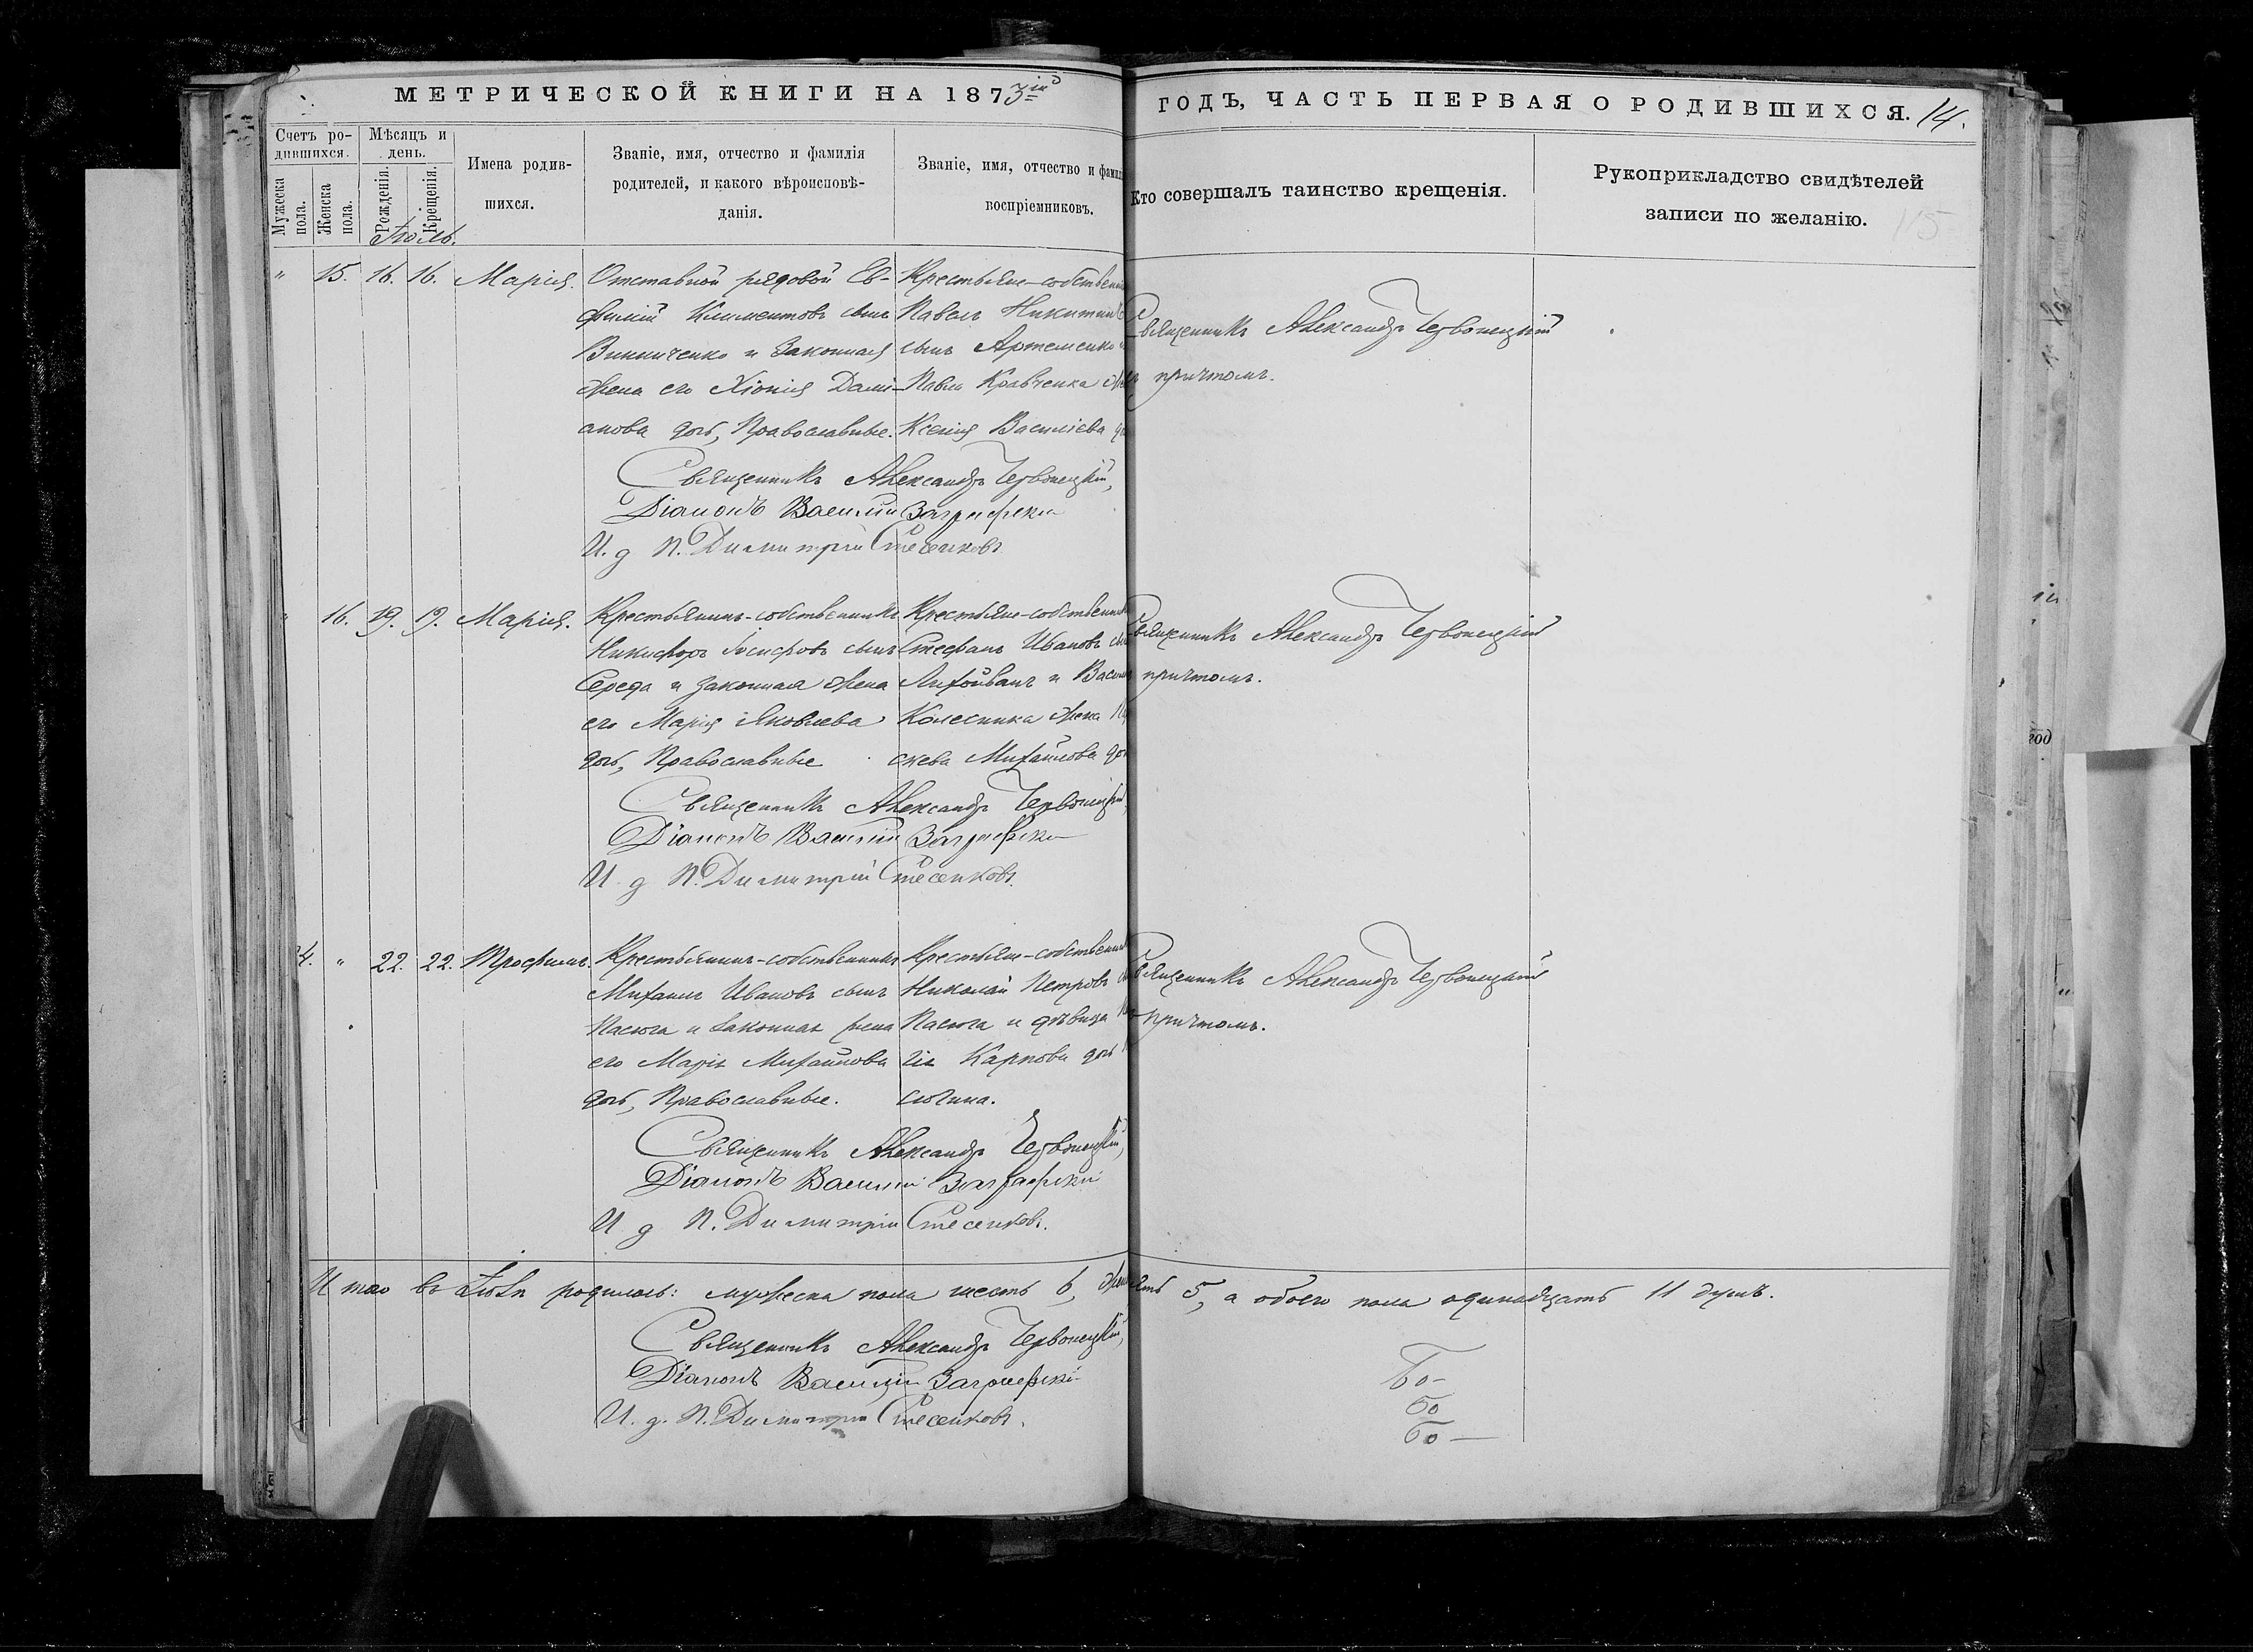 МЕТРИЧЕСКОЙ КНИГИ НА 1873ій
ГОДЪ, ЧАСТЬ ПЕРВАЯ О РОДИВШИХСЯ. 14.
Счетъ ро-
дившихся.
Мужеска пола.
Женска пола.
Мѣсяцъ и
день.
Рожденія.
Крещенія.
Имена родив-
шихся.
Званіе, имя, отчество и фамилія
родителей, и какого вѣроисповѣ-
данія.
Званіе, имя, отчество и фами
воспріемниковъ.
Кто совершалъ таинство крещенія.
Рукоприкладство свидѣтелей
записи по желанію.
115
Іюль.
" 15. 16. 16. Марія.
Отставной рядовой Ев-
фимій Климентовъ сынъ
Винниченко и законная
жена его Хіонія Дамі-
анова дочь, Православные.
Крестьяне-собственни
Павелъ Никитинъ
сынъ Артеменко и
Павла Кравченка
Ксенія Василіева
Священникъ Александръ Червонецкій
причтомъ.
Священникъ Александръ Червонецкій,
Діаконъ Василій
И. д. П. Димитрій Стесенковъ.
16. 19. 19. Марія.
Крестьянинъ-собственникъ
Никифоръ Іосифовъ сынъ
Середа и законная жена
его Марія Яковлева
дочь, Православные
Крестьяне-собственни
Стефанъ Ивановъ
Лихойванъ и
Колесника жена
Михайлова
Священникъ Александръ Червонецкій
причтомъ.
Священникъ Александръ Червонецкій,
Діаконъ Василій
И. д. П. Димитрій Стесенковъ.
4. " 22. 22. Трофимъ.
Крестьянинъ-собственникъ
Михаилъ Ивановъ сынъ
Пасюга и законная жена
его Марія Михайлова
дочь, Православные.
Крестьяне-собственни
Николай Петровъ
Пасюга и дѣвица
Карпова дочь
сюгина.
Священникъ Александръ Червонецкій
причтомъ.
Священникъ Александръ Червонецкій,
Діаконъ Василій
И. д. П. Димитрій Стесенковъ.
Итого въ Іюлѣ родилось: мужеска пола шесть 6, 5, а обоего пола одинадцать 11 душъ.
Священникъ Александръ Червонецкій,
Діаконъ Василій
И. д. П. Димитрій Стесенковъ.